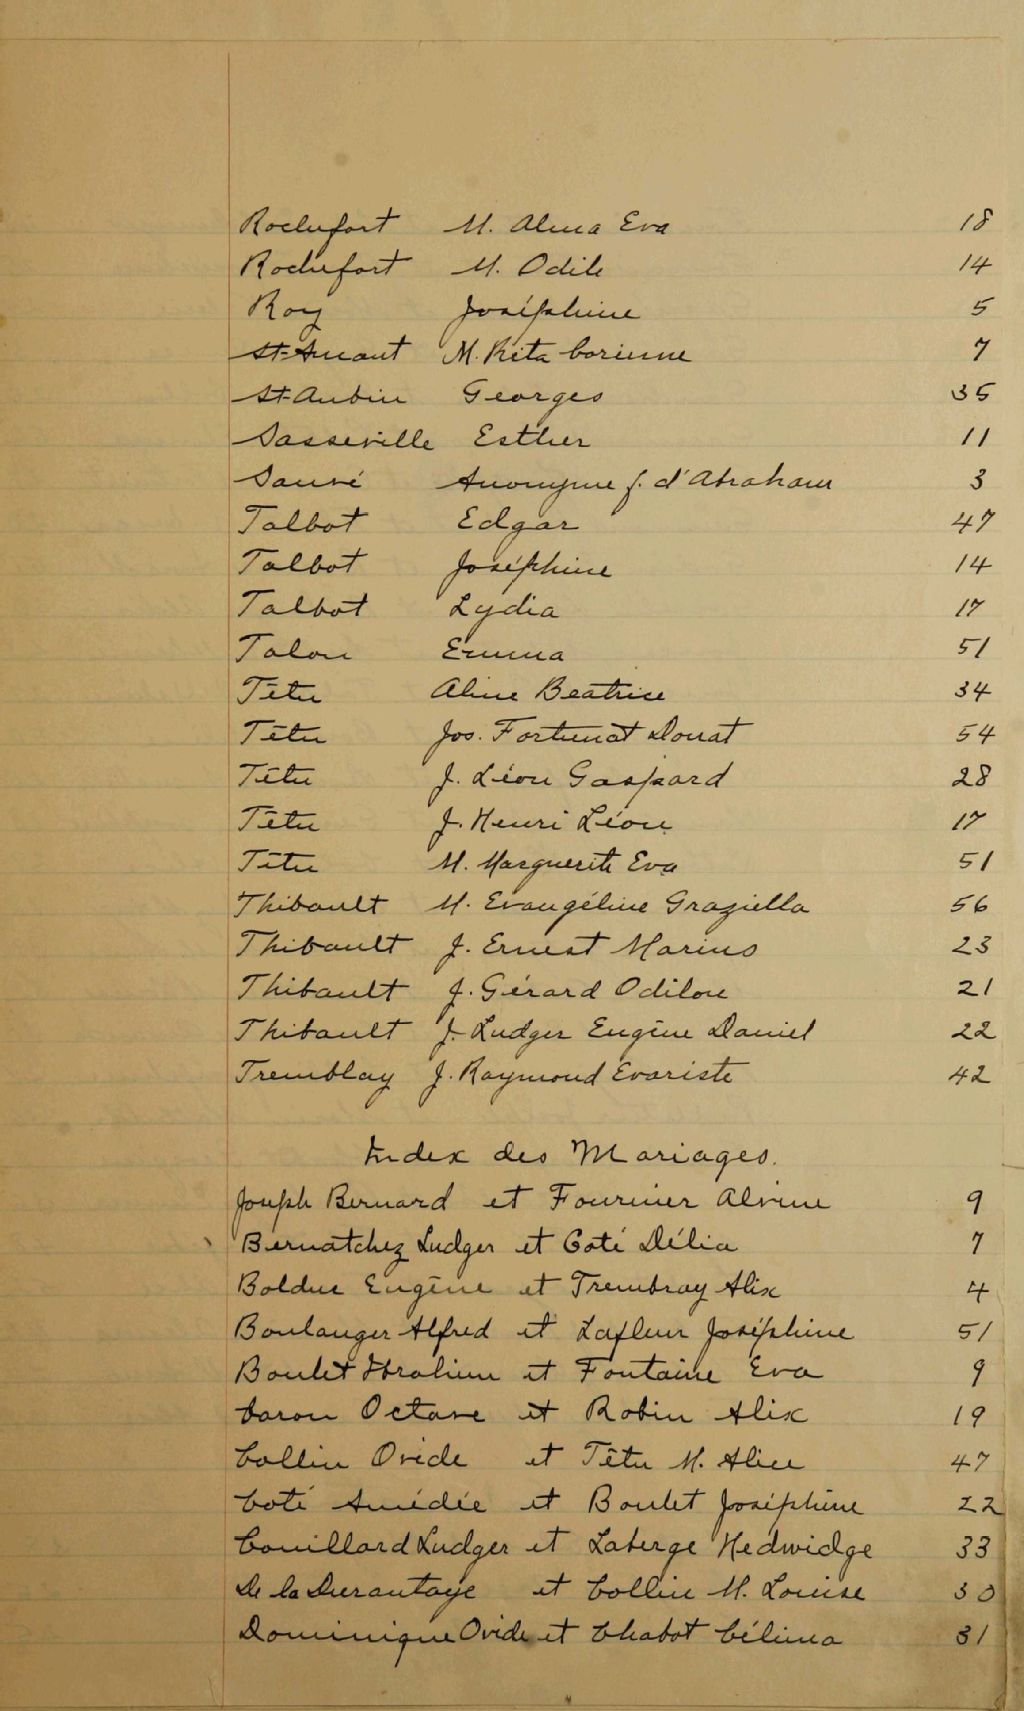 Rochefort M. Alma Eva 18
Rochefort M. Odile 14
Roy Joséphine 5
St-Amant M. Rita Corinne 7
St-Aubin Georges 35
Sasseville Esther 11
Sauvé Anonyme f. d'Abraham 3
Talbot Edgar 47
Talbot Joséphine 14
Talbot Lydia 17
Talon Emma 51
Têtu Aline Béatrice 34
Têtu Jos. Fortunat Donat 54
Têtu J. Léon Gaspard 28
Têtu J. Henri Léon 17
Têtu M. Marguerite Eva 51
Thibault M. Evangéline Graziella 56
Thibault J. Ernest Marius 23
Thibault J. Gérard Odilon 21
Thibault J. Ludger Eugène Daniel 22
Tremblay J. Raymond Evariste 42
Index des Mariages.
Joseph Bernard et Fournier Alvine 9
Bernatchez Ludger et Coté Délia 7
Bolduc Eugène et Trembray Alix 4
Boulanger Alfred et Lafleur Joséphine 51
Boulet Abrahim et Fontaine Eva 9
Caron Octave et Robin Alix 19
Collin Ovide et Têtu M. Alice 47
Coté Amédée et Boulet Joséphine 22
Couillard Ludger et Laberge Hedwidge 33
De la Durantaye et Collin M. Louise 30
Dominique Ovide et Chabot Célima 31